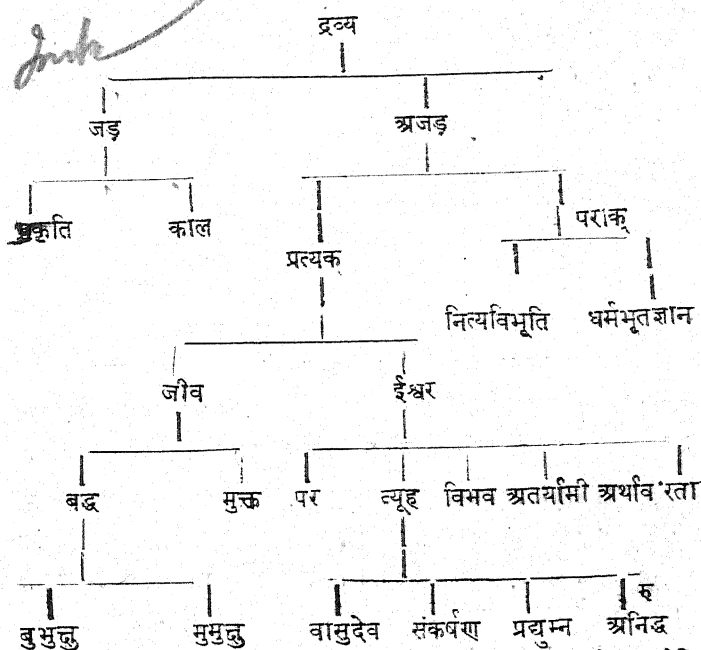 द्रव्य
जड़ अजड़
प्रकृति काल
पराक्
प्रत्यक्
नित्यविभूति धर्मभूतज्ञान
जीव ईश्वर
बद्ध मुक्त पर व्यूह विभव अतर्यामी अर्थाव रता
रु
बुभुक्षु मुमुक्षु वासुदेव संकर्षण प्रद्युम्न अनिद्ध